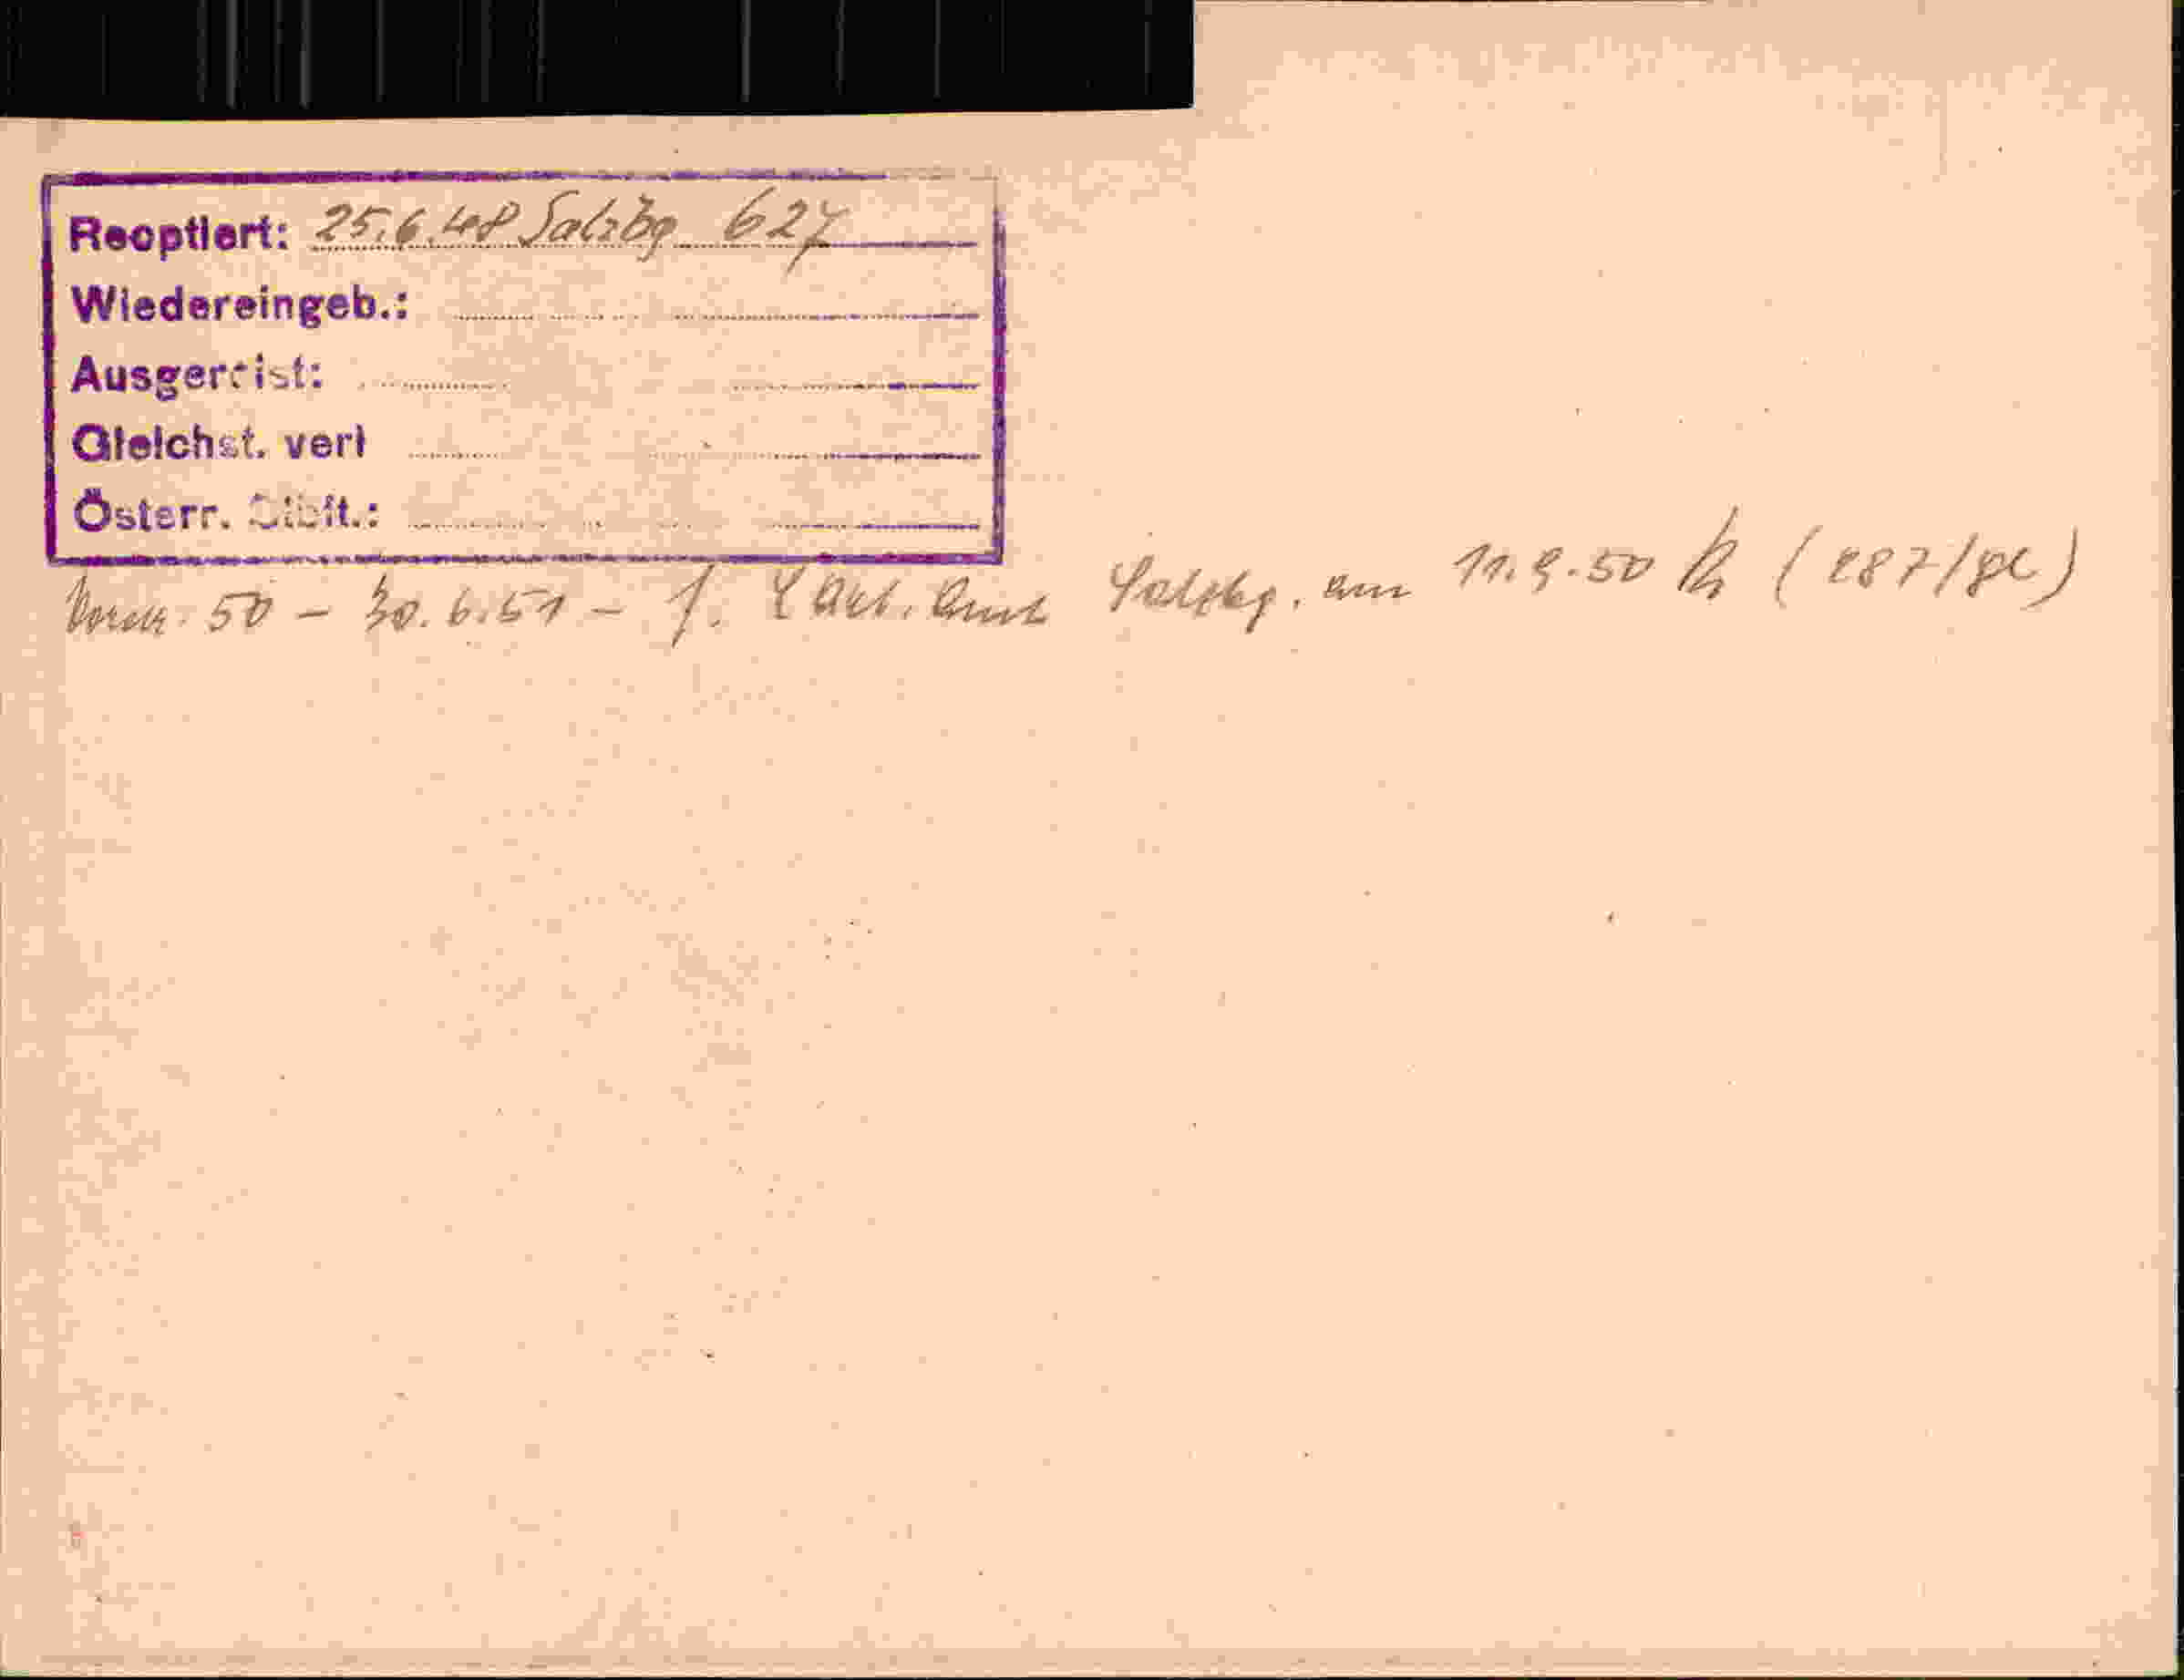 Reoptiert: 25.6.48 Salzbg 627
Wiedereingeb.:
Ausgereist:
Gleichst. verl
Österr. Stbft.:
50 – 30.6.51 – f. Amt Salzbg. am 11.9.50 (287/